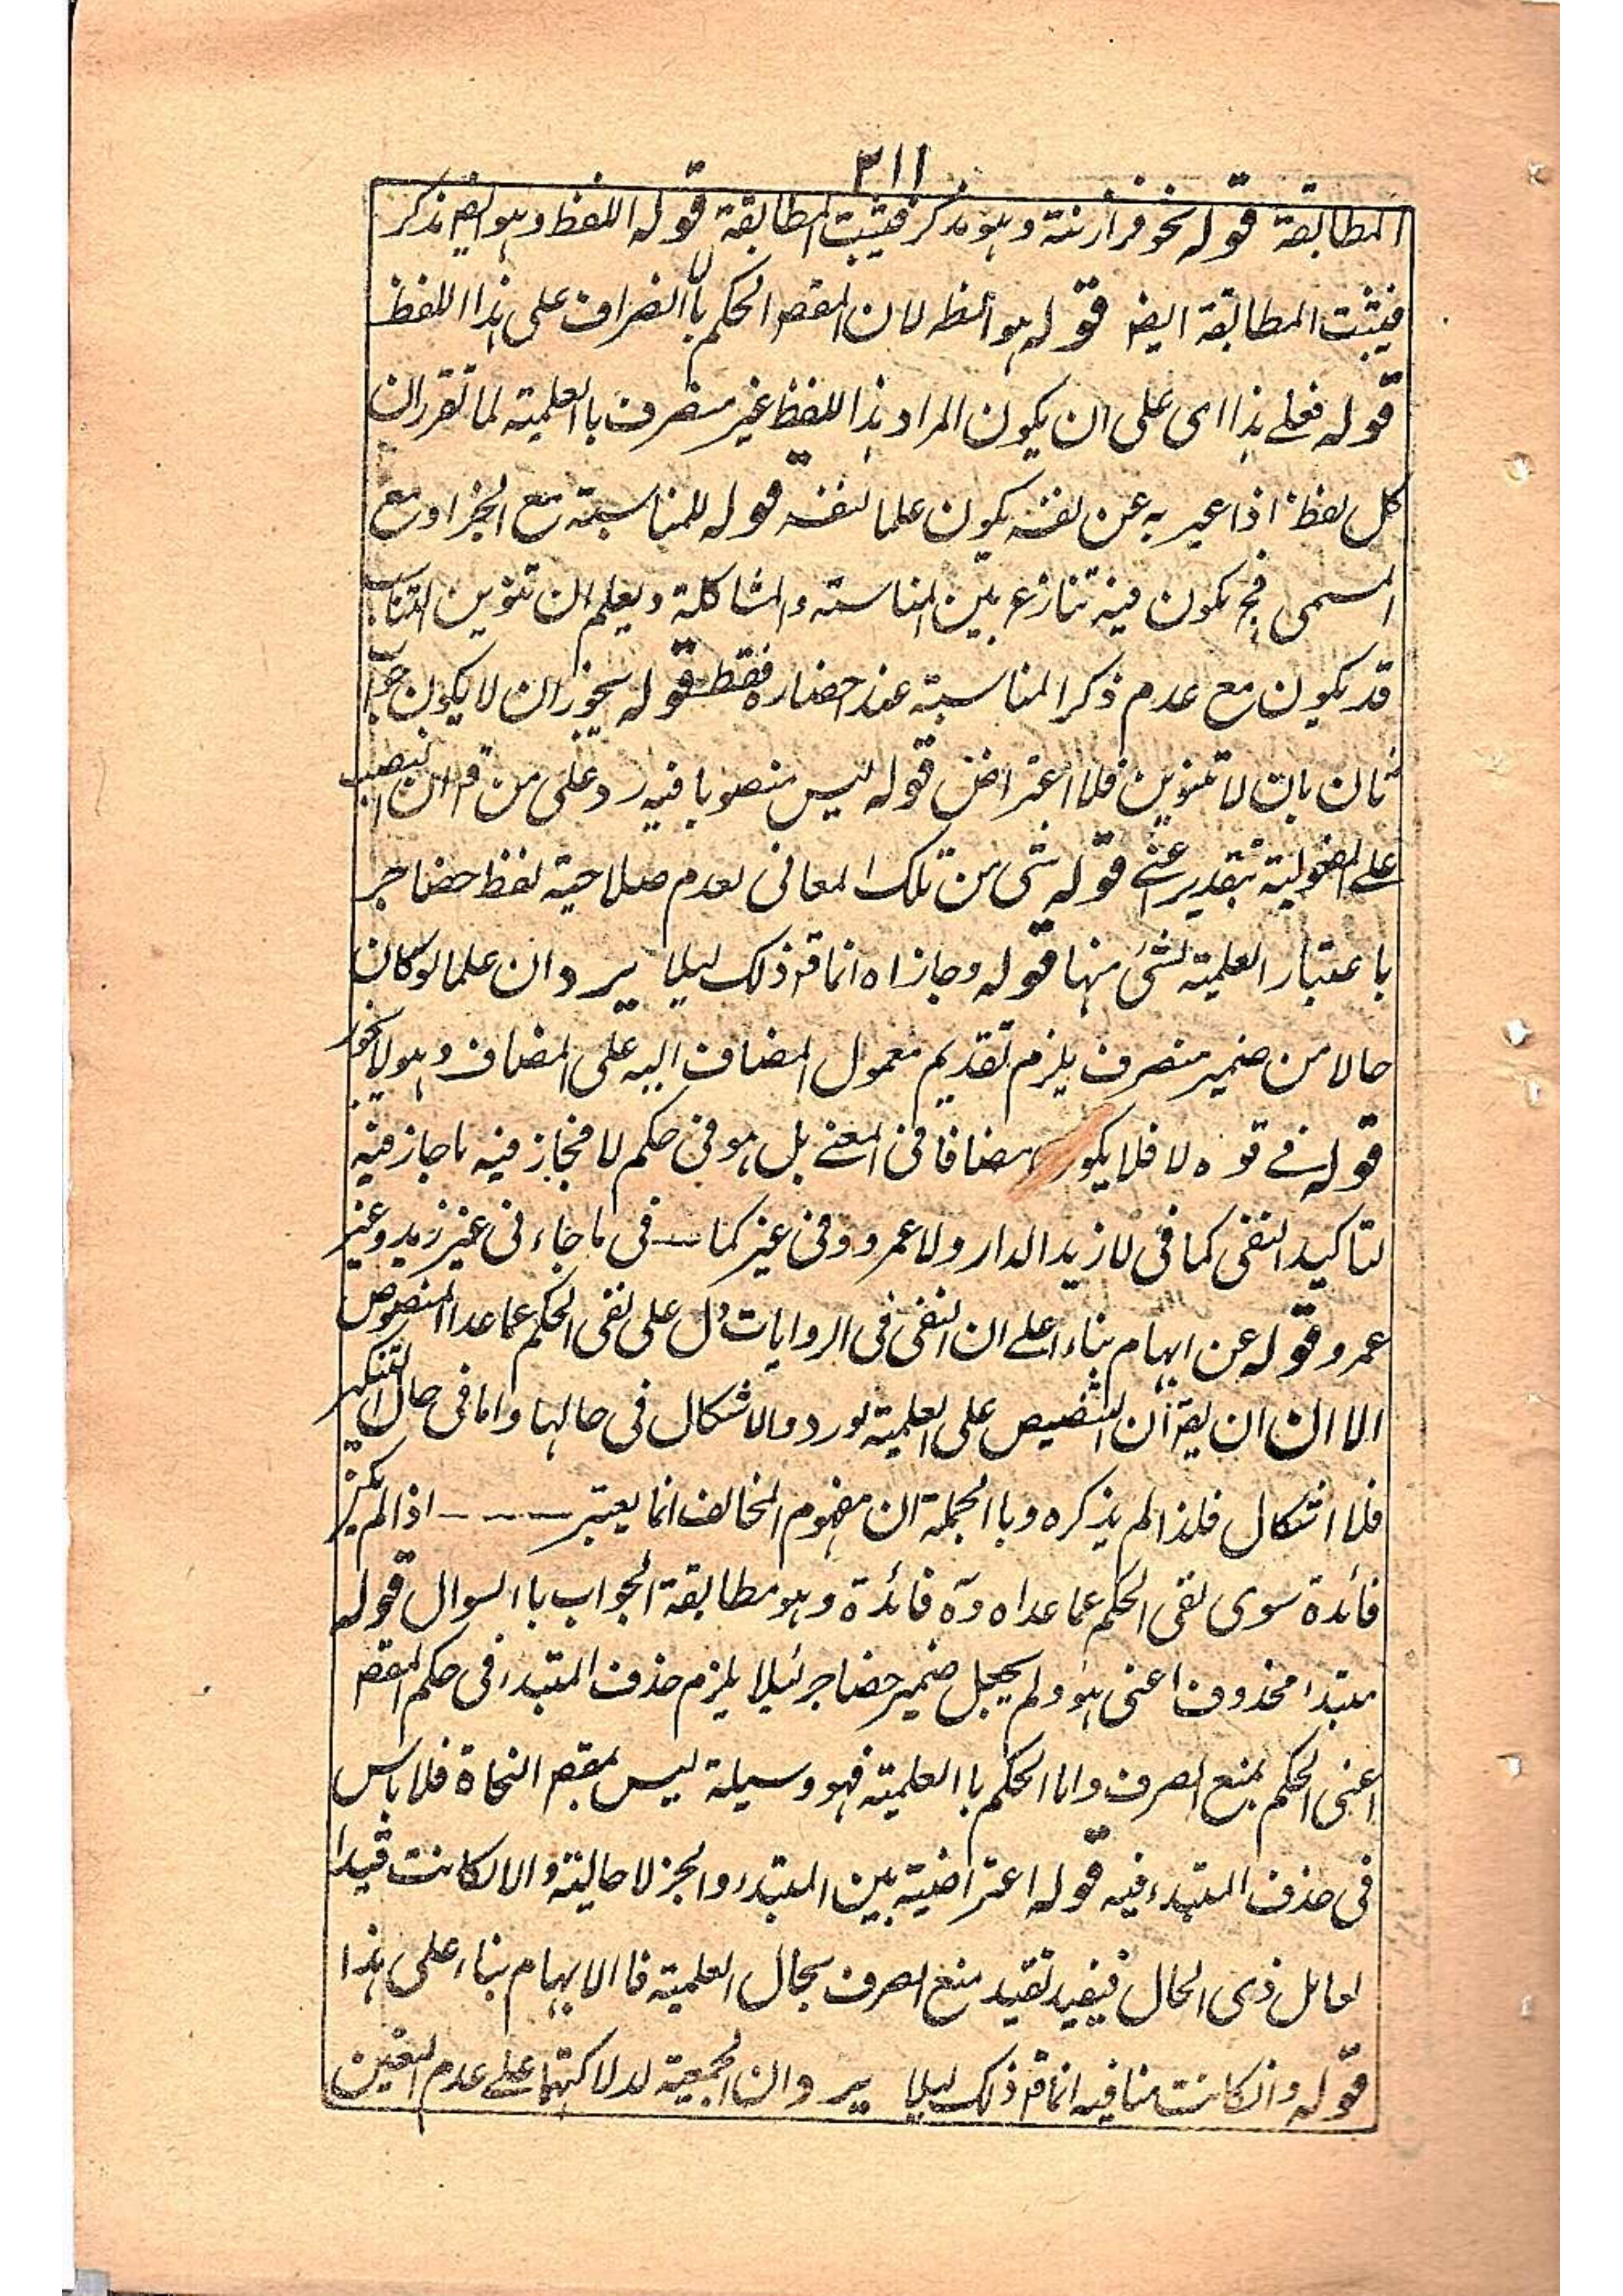 ٣١١
المطابقة قوله نحو فرازنة وهو مذكر فيثبت المطابقة قوله اللفظ وهو ايضا مذكر
فيثبت المطابقة ايض قوله هو الظ لان المقص الحكم باالنصراف على هذا اللفظ
قوله فعلے هذا اى على ان يكون المراد هذا اللفظ غير منصرف باالعلمية لما تقرر ان
كل لفظ اذا عبر به عن نفسه يكون علما لنفسه قوله للمناسبة مع الخبر او مع
المسمى فح يكون فيه تنازع بين المناسبة والمشاكلة ويعلم ان تنوين التناسب
قد يكون مع عدم ذكر المناسبة عند حضاره فقط قوله يجوز ان لا يكون جوا
ثان بان لا تنوين فلا اعتراض قوله ليس منصوبا فيه رد على من قال ان النصب
على المفعولية بتقدير اعنے قوله شى من تلك المعانى لعدم صلاحية لفظ حضاجر
باعتبار العلمية لشئ منها قوله وجازاه انما قر ذلك ليلا يرد ان علما لو كان
حالا من ضمير منصرف يلزم تقديم معمول المضاف اليه على المضاف وهو لا يجوز
قوله فے قوه لا فلا يكون مضافا فى المعنے بل هو فى حكم لا فجاز فيه ما جاز فيه
لتاكيد النفى كما فى لا زيد الدار ولا عمرو وفى غير كما — فى ما جاء نى غير زيد وغير
عمرو قوله عن ايهام بناء اعلے ان النفى فى الروايات دل على نفى الحكم عما عدا المنصوص
الا ان ان يقر ان التنصيص على العلمية لورد والاشكال فى حالها واما فى حال التنكير
فلا اشكال فلذا لم يذكره وبا الجملة ان مفهوم المخالف انما يعتبر ـ ـ ـ ـ اذا لم يكن
فائدة سوى نفى الحكم عما عداه وة فائدة وهو مطابقة الجواب با السوال قوله
مبتدا محذوف اعنى هو ولم يجعل ضمير حضاجر لئيلا يلزم حذف المبتدء فى حكم المقص
اعنى الحكم بمنع الصرف واما الحكم با العلمية فهو وسيلة ليس بمقص النحاة فلا باس
فى حذف المبتدء فيه قوله اعتراضية بين المبتدء والخبر لا حالية والا لكانت قيدا
لعامل ذى الحال فيفيد تقيد منع الصرف بحال العلمية فا الايهام بناء على هذا
قوله وان كانت منافيه انما قر ذلك ليلا يرد ان الجمعية لدلالتها علے عدم التعين